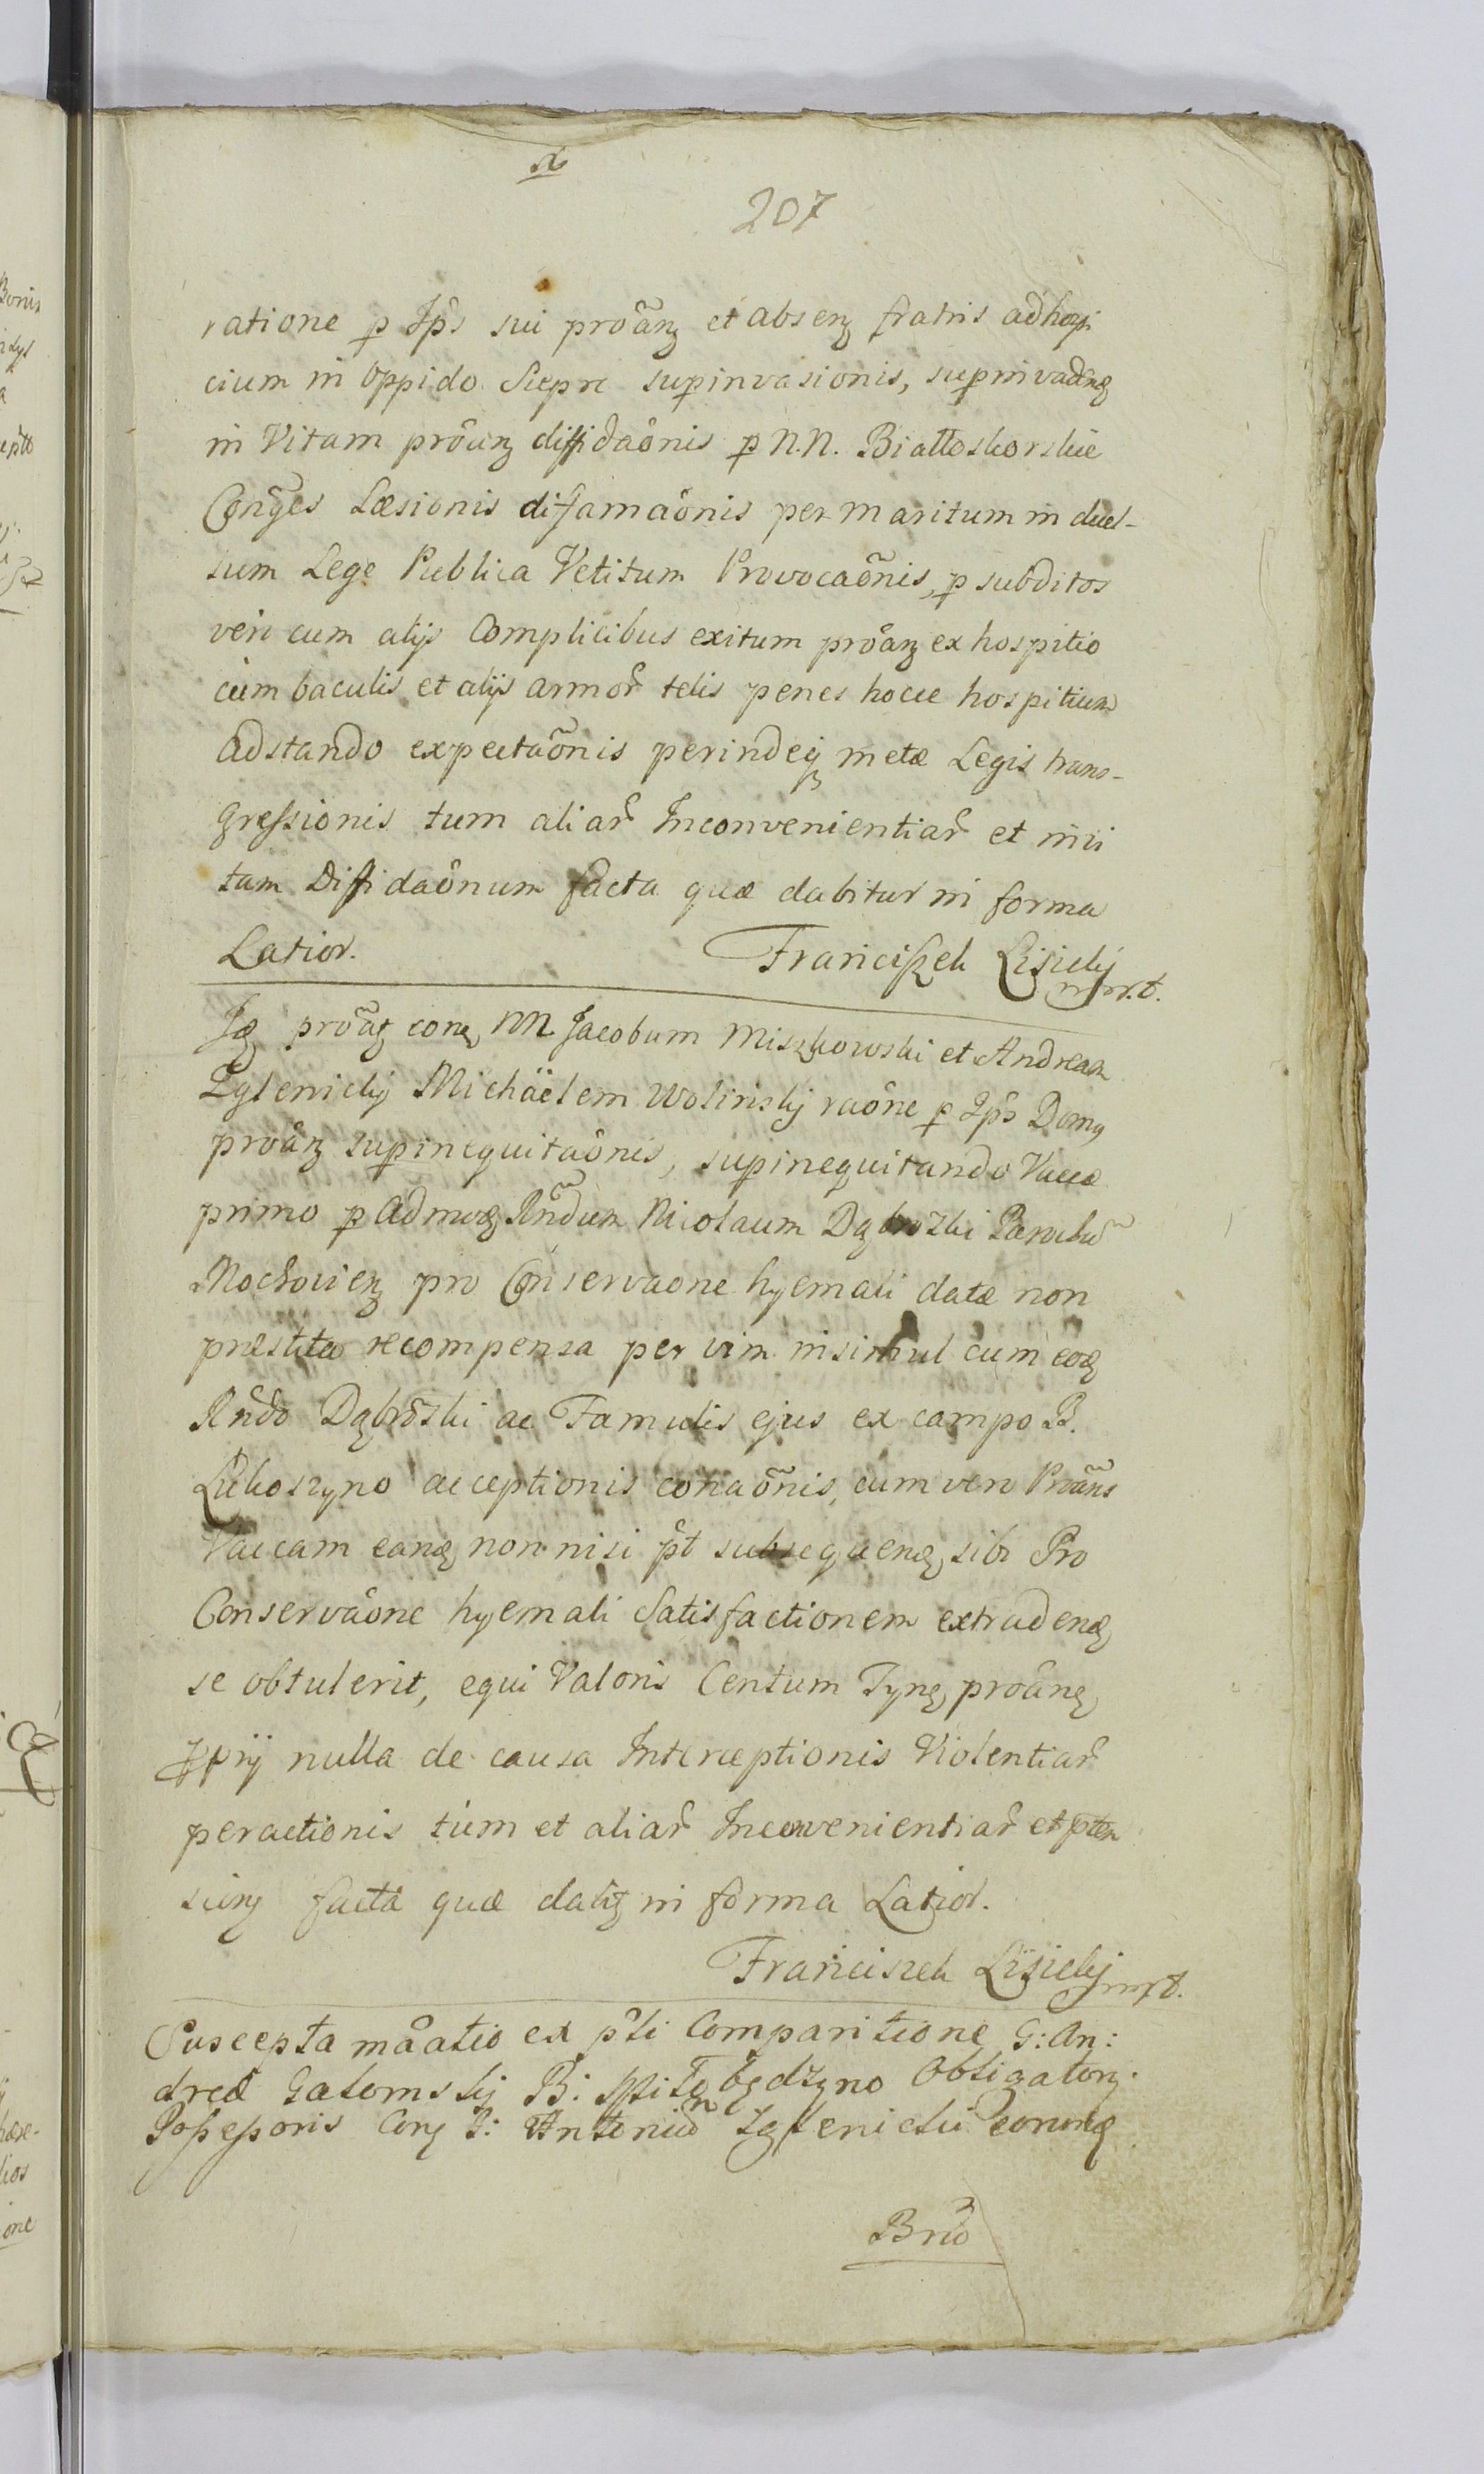 207
ratione p Ips sui proãnz et absenz fratris ad hospi
cium in oppido Sierpc supinvasionis, supinvadenq
in Vitam proãnz diffidaõnis p N.N. Białłoskorskie
Conges Læsionis diffamaõnis per maritum in duel-
sum Lege Publica Vetitum Provocaõnis, p subditos
vero cum alijs Complicibus exitum proãnz ex hospitio
cum baculis et alijs armor telis penes hocce hospitium
adstando expectaõnis perindeq metæ Legis trans-
gressionis tum aliar Inconvenientiar et invi
tam Diffidaõnum facta quæ dabitur in forma
Latior.
Franciszek Lisicky mpr.
proãtz conq NN Jacobum Miszkowski et Andream
Zglenicky Michäelem Wolinsky raõne p Ips Domq
proãnz supinequitaõnis, supinequitando Vaccæ
primo p Admoq Rndum Nicolaum Dąbrozki Parochũ
Mochovienz pro Conservaone hyemali datæ non
præstita recompensa per vim insimul cum eoq
Rndo Dąbrozki ac Famulis ejus ex campo B.
Lukoszyno acceptionis conaõnis, cum vero Proãns
Vaccam eanq non nisi pt subsequenq sibi Pro
Conservaõne hyemali Satisfactionem extradenq
se obtulerit, equi Valoris Centum Tynq proãnq
pprij nulla de causa Interceptionis Violentiar
peractionis tum et aliar Inconvenientiar et pten
sinq facta quæ dabitz in forma Latior.
Franciszek Lisicky mpr.
Suscepta mãatio ex pti Comparitione G: An:
dreæ Galomsky B: Obligatorz.
Possessoris Conq G: Antoniũ Zglenicki eorumq
Brũ